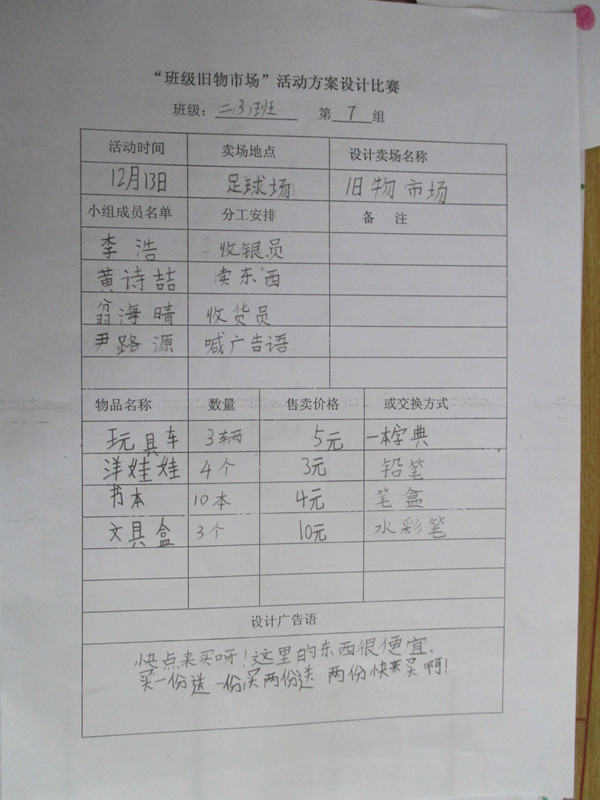 “班级旧物市场”活动方案设计比赛
班级：二3班 第7组
活动时间 卖场地点 设计卖场名称
12月13日 足球场 旧物市场
小组成员名单 分工安排 备 注
李浩 收银员
黄诗喆 卖东西
翁海晴 收货员
尹路源 喊广告语
物品名称 数量 售卖价格 或交换方式
玩具车 3辆 5元 一本字典
洋娃娃 4个 3元 铅笔
书本 10本 4元 笔盒
文具盒 3个 10元 水彩笔
设计广告语
快点来买呀！这里的东西很便宜.
买一份送一份,买两份送两份快来买啊！